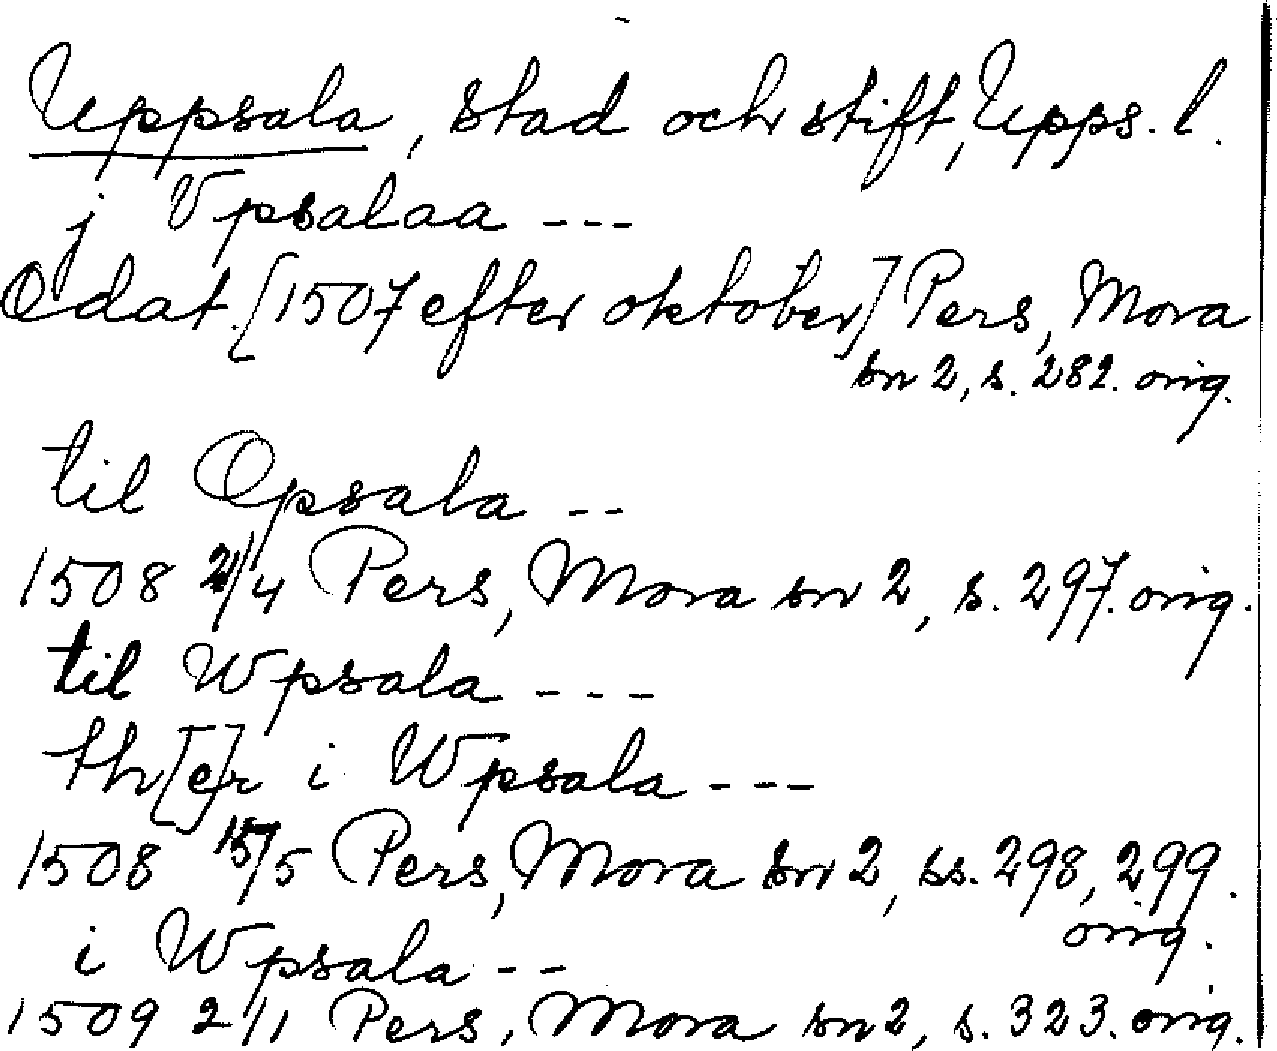 Uppsala, stad och stift, Upps. l.
j Vpsalaa ---
Odat. [1507 efter oktober] Pers, Mora
sn 2, s. 282. orig.
til Opsala --
1508 2/4 Pers, Mora sn 2, s. 297. orig.
til Wpsala ---
th[e]r i Wpsala ---
1508 15/5 Pers, Mora sn 2, ss. 298, 299.
orig.
i Wpsala --
1509 2/1 Pers, Mora sn 2, s. 323. orig.